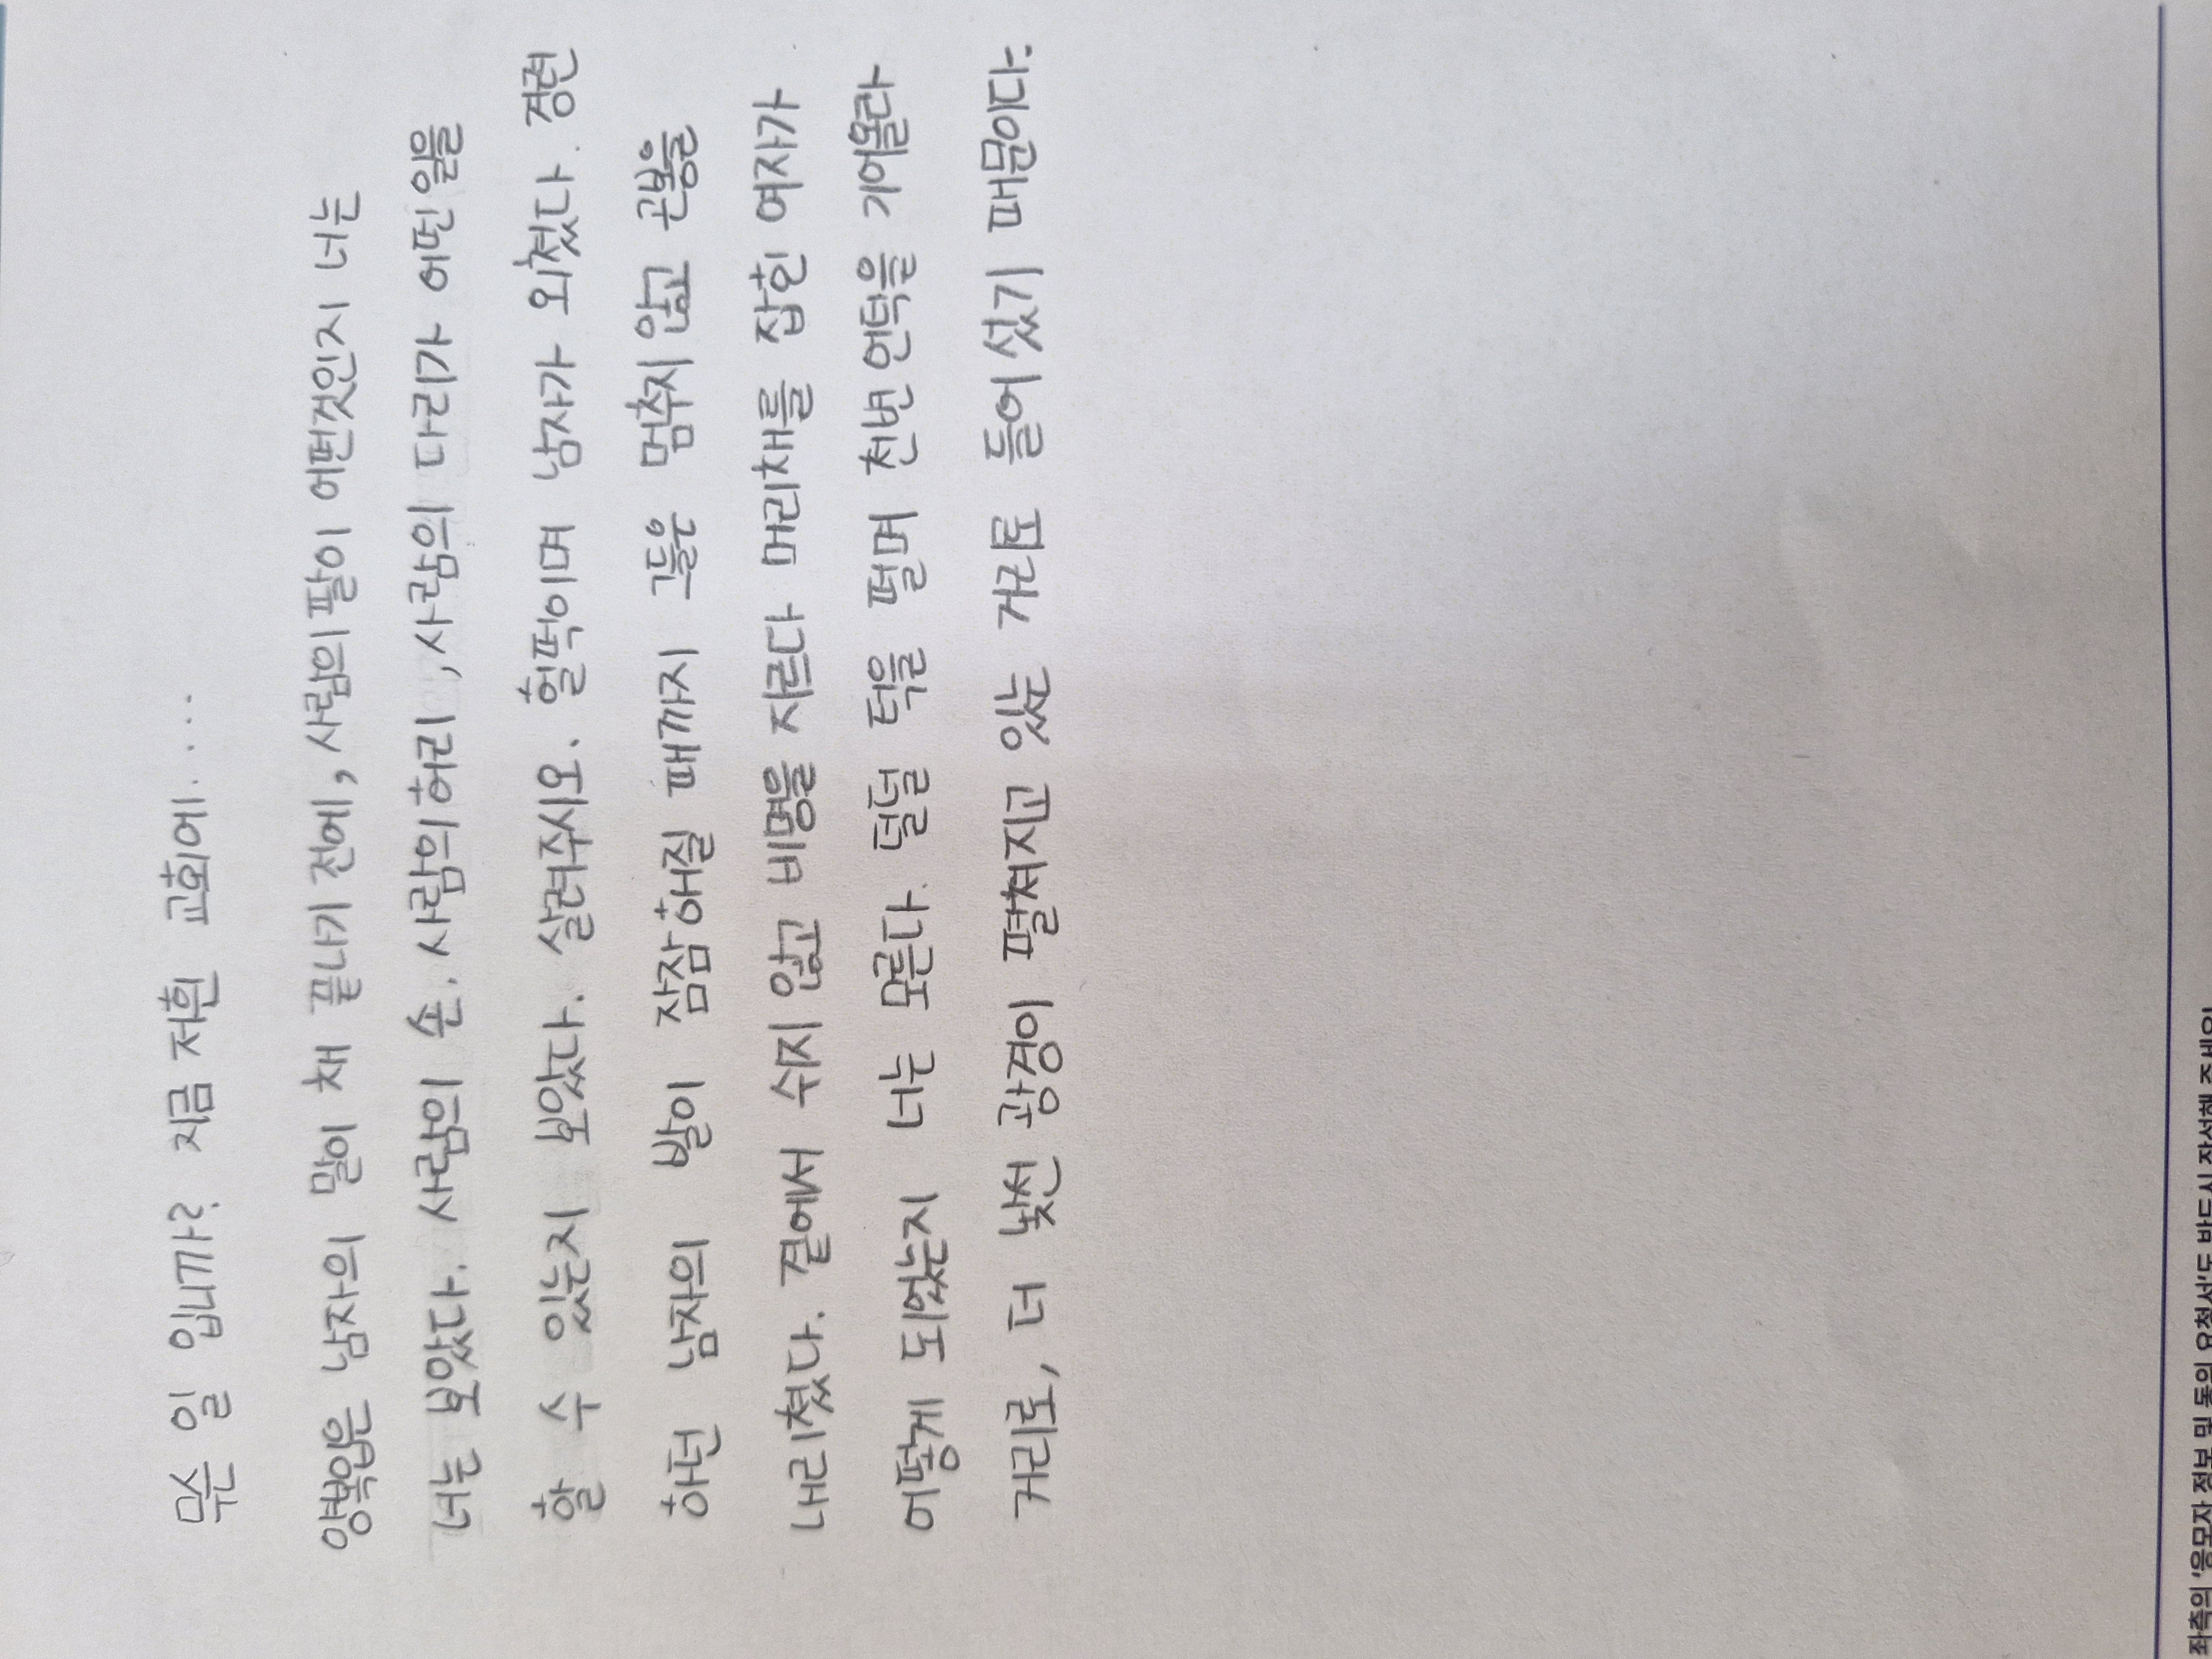 무슨 일 입니까? 지금 저흰 교회에....
양복입은 남자의 말이 채 끝나기 전에, 사람의 팔이 어떤것인지 너는
너는 보았다. 사람의 손. 사람의 허리, 사람의 다리가 어떤 일을
할 수 있는지 보았다. 살려주시오. 헐떡이며 남자가 외쳤다. 경련
하던 남자의 발이 잠잠해질 때까지 그들은 멈추지 않고 곤봉을
내리쳤다. 곁에서 쉬지 않고 비명을 지르다 머리채를 잡힌 여자가
어떻게 되었는지 너는 모른다. 덜덜 턱을 떨며 천변 언덕을 기어올라
거리로, 더 낯선 광경이 펼쳐지고 있는 거리로 들어섰기 때문이다.
좌측의 '응모자 정보 및 동의 요청서'도 반드시 작성해 주세요